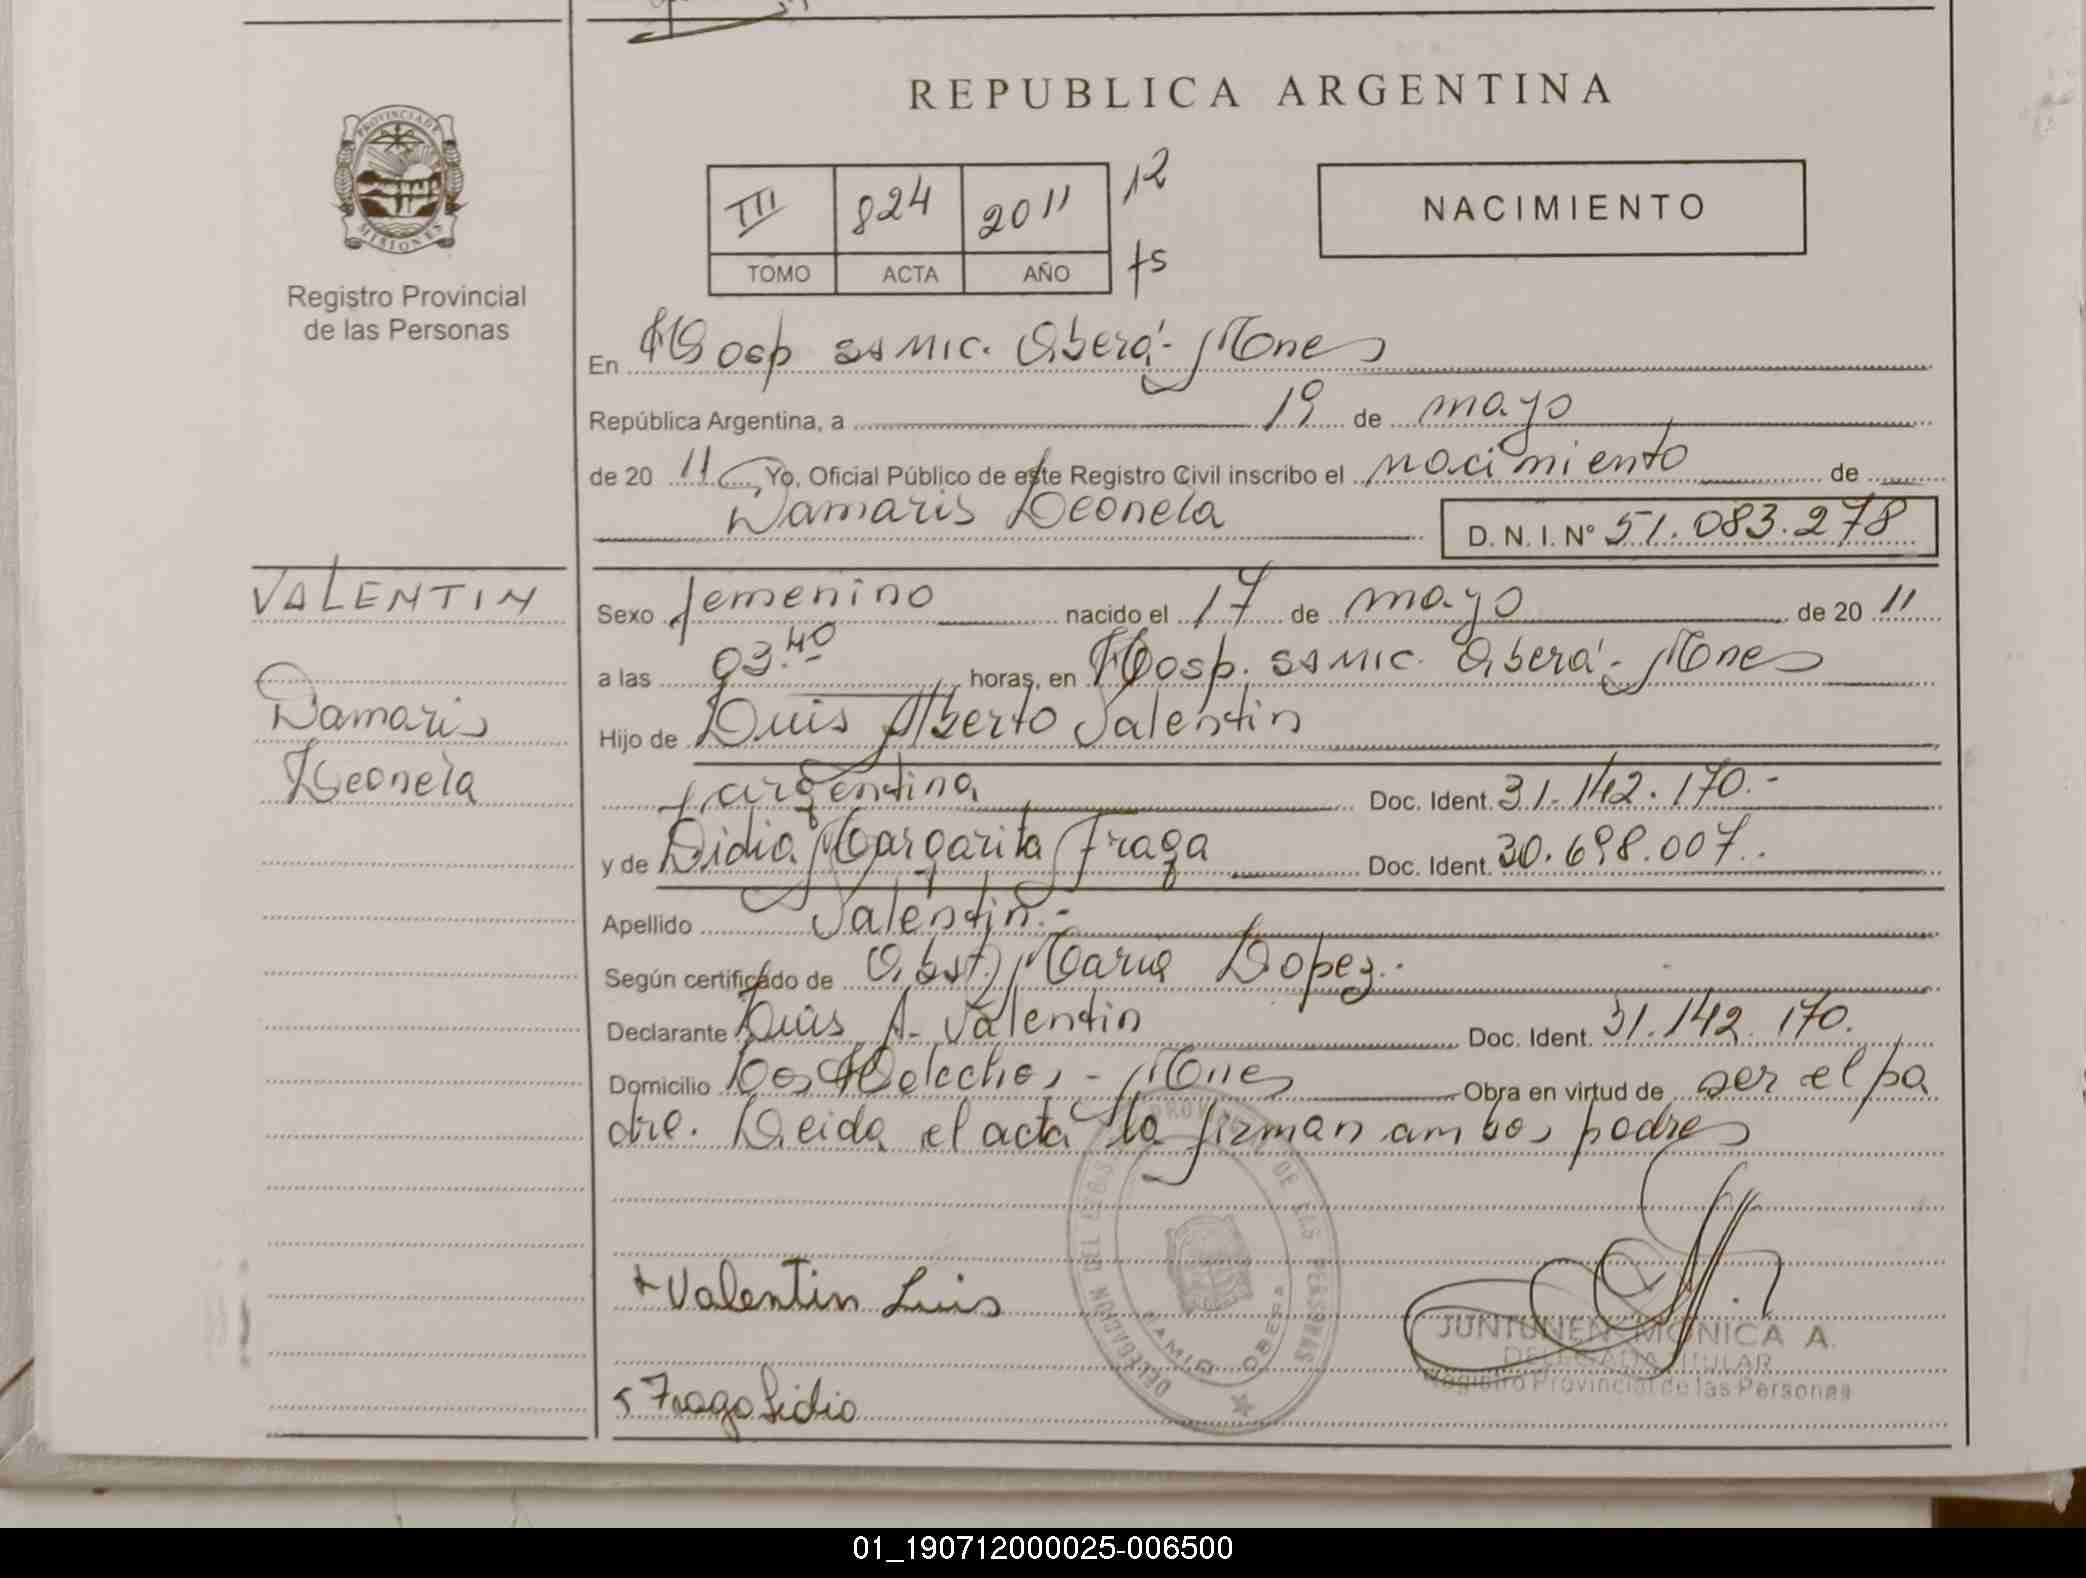 REPUBLICA ARGENTINA
PROVINCIA DE MISIONES
Registro Provincial
de las Personas
III 824 2011 12
TOMO ACTA AÑO fs
NACIMIENTO
En Hosp SAMIC. Oberá - Mnes
República Argentina, a 19 de mayo
de 20 11 Yo, Oficial Público de este Registro Civil inscribo el nacimiento de
Damaris Leonela D. N. I. Nº 51.083.278
VALENTIN
Damaris
Leonela
Sexo femenino nacido el 17 de mayo de 20 11
a las 03.40 horas, en Hosp. SAMIC. Oberá - Mnes
Hijo de Luis Alberto Valentin
argentina Doc. Ident. 31.142.170.-
y de Lidia Margarita Fraga Doc. Ident. 30.698.007.
Apellido Valentin.-
Según certificado de Obst. Maria Lopez.
Declarante Luis A. Valentin Doc. Ident. 31.142.170.
Domicilio Los Helechos - Mnes Obra en virtud de ser el pa
dre. Leida el acta la firman ambos padres
Valentin Luis
Fraga Lidia
DELEGACION DEL REGISTRO PROVINCIAL DE LAS PERSONAS
OBERA
JUNTUNEN MONICA A.
DELEGADA TITULAR
Registro Provincial de las Personas
01_190712000025-006500